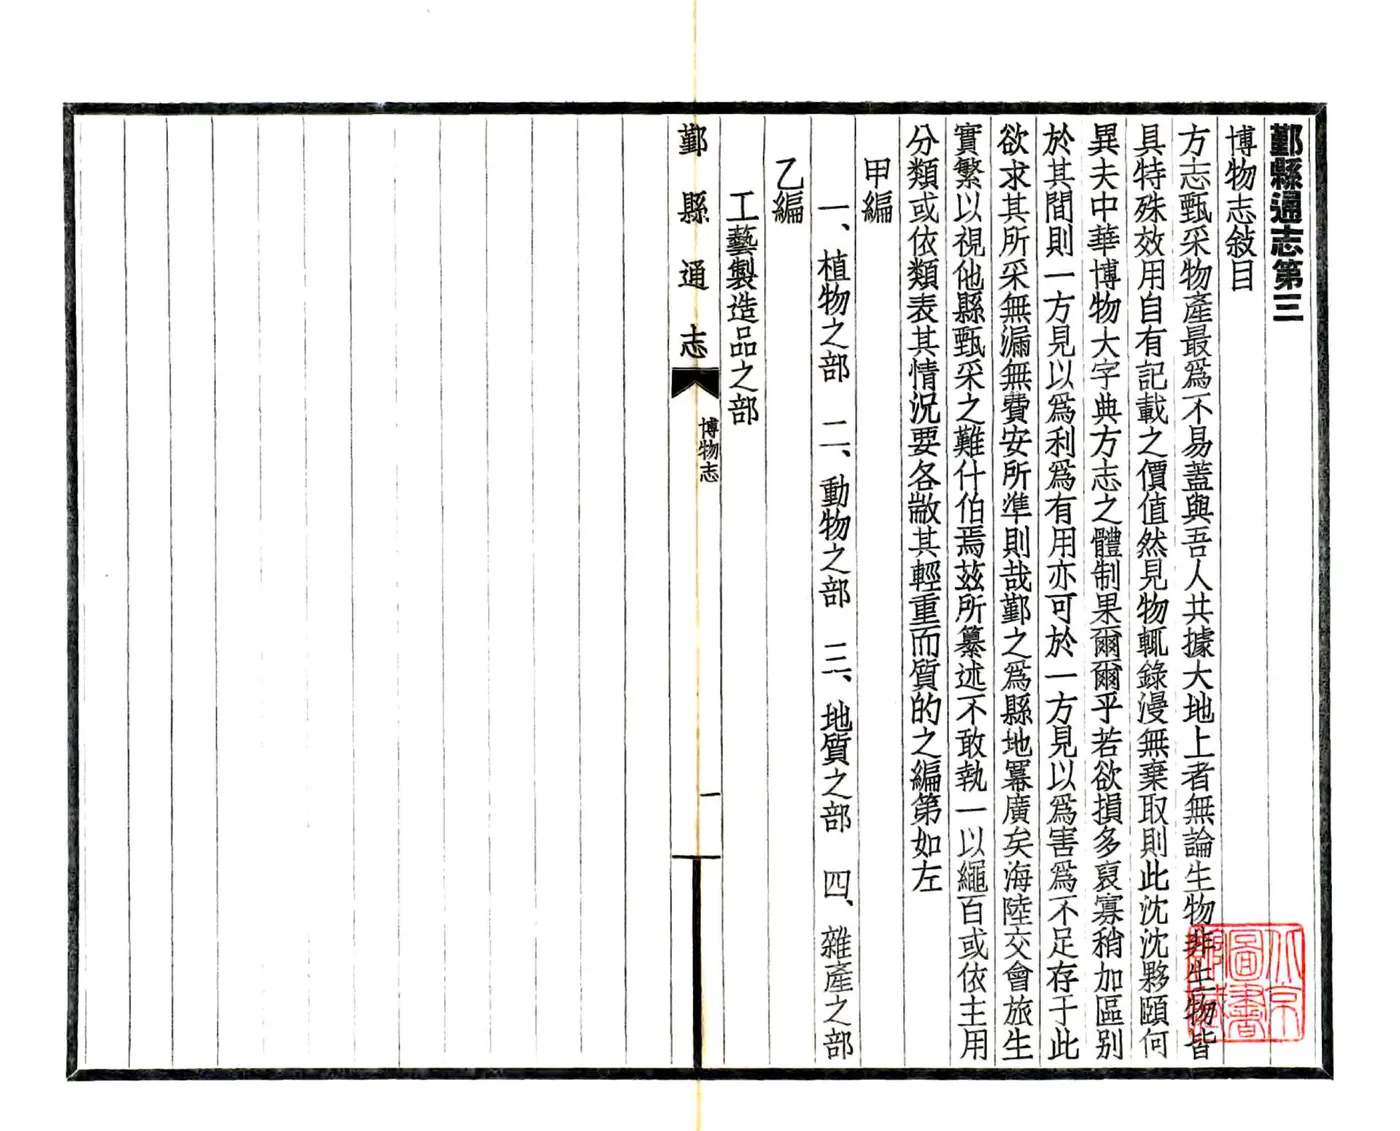 鄞縣通志第三
博物志敍目
方志甄采物產最爲不易蓋與吾人共據大地上者無論生物非生物皆
具特殊效用自有記載之價值然見物輒錄漫無棄取則此沈沈夥頤何
異夫中華博物大字典方志之體制果爾爾乎若欲損多裒寡稍加區别
於其間則一方見以爲利爲有用亦可於一方見以爲害爲不足存于此
欲求其所采無漏無費安所準則哉鄞之爲縣地冪廣矣海陸交會旅生
實繁以視他縣甄采之難什伯焉茲所纂述不敢執一以繩百或依主用
分類或依類表其情況要各敝其輕重而質的之編第如左
甲編
一、植物之部 二、動物之部 三、地質之部 四、雜產之部
乙編
工藝製造品之部
鄞縣通志 博物志 一